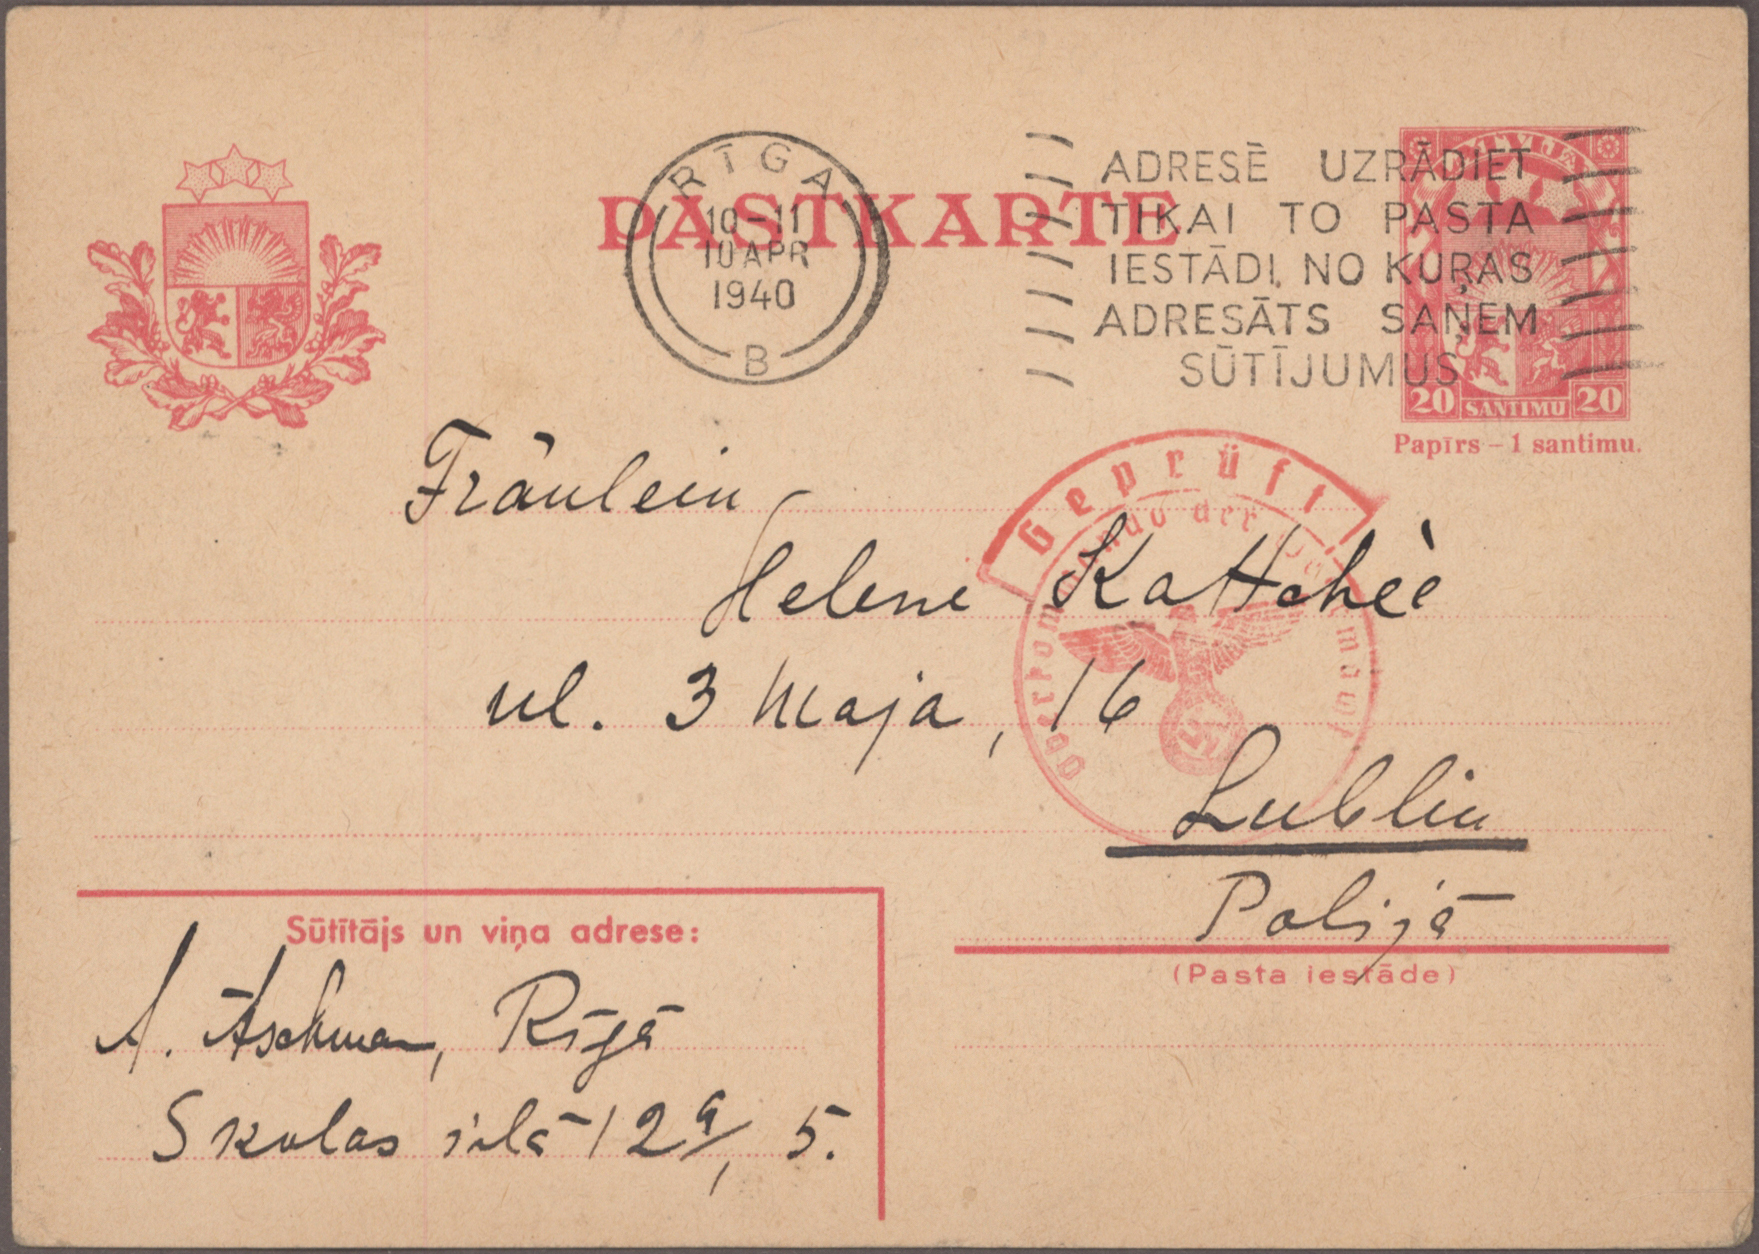 RĪGA
10-11
10 APR
1940
B
PASTKARTE
ADRESĒ UZRĀDIET
TIKAI TO PASTA
IESTĀDI, NO KUŖAS
ADRESĀTS SAŅEM
SŪTĪJUMUS
LATVIJA
20 SANTIMU 20
Papīrs – 1 santimu.
Geprüft
Oberkommando der Wehrmacht
Fräulein
Helene Kattchèe
ul. 3 Maja, 16
Lublin
Polijā
(Pasta iestāde)
Sūtītājs un viņa adrese:
A. Aschman, Rīgā
Skolas ielā 12a, 5.